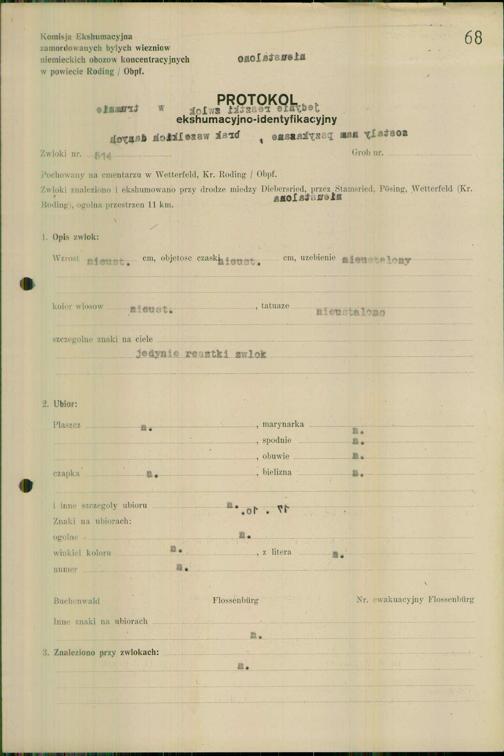 68
Komisja Ekshumacyjna
zamordowanych byłych wiezniow
niemieckich obozow koncentracyjnych
w powiecie Roding / Obpf.
PROTOKOL
ekshumacyjno-identyfikacyjny
Zwloki nr. 514 Grob nr.
Pochowany na cmentarzu w Wetterfeld, Kr. Roding / Obpf.
Zwloki znaleziono i ekshumowano przy drodze miedzy Diebersried, przez Stamsried, Pösing, Wetterfeld (Kr.
Roding), ogolna przestrzen 11 km.
1. Opis zwlok:
Wzrost nieust. cm, objetosc czaski nieust. cm, uzebienie nieustalony
kolor wlosow nieust. , tatuaze nieustalono
szczegolne znaki na ciele
jedynie resztki zwlok
2. Ubior:
Plaszcz n. , marynarka n.
, spodnie n.
, obuwie n.
czapka n. , bielizna n.
i inne szczegoly ubioru n.
Znaki na ubiorach:
ogolne n.
winkiel koloru n. , z litera n.
numer n.
Buchenwald Flossenbürg Nr. ewakuacyjny Flossenbürg
Inne znaki na ubiorach
n.
3. Znaleziono przy zwlokach:
n.